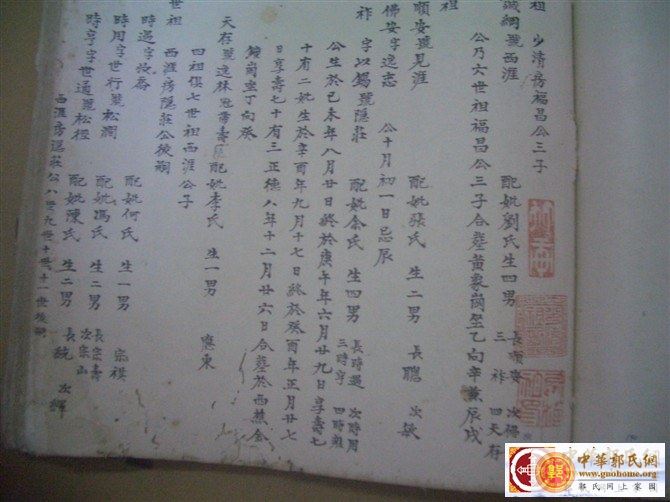 祖 少清房福昌公三子
誠綱號西涯 配妣劉氏生四男 長順安 次佛
三祚 四天存
公乃六世祖福昌公三子合葬黄象崗坐乙向辛兼辰戌
祖
順安號見涯 配妣張氏 生二男 長聰 次敏
佛安字逸志 公十月初一日忌辰
祚 字以錫號隱莊 配妣余氏 生四男 長時遇 次時用
三時亨 四時
公生於己未年八月廿日終於庚午年六月廿九日享壽七
十有二妣生於辛酉年九月十七日終於癸酉年正月廿七
日享壽七十有三正德八年十二月廿六日合葬於西樵金
鐘崗坐丁向癸
天存號逸林冠帶壽 配妣李氏 生一男 應東
四祖偀七世祖西涯公子
世祖 西涯房隱莊公後嗣
時遇字
時用字世行號松澗 配妣何氏 生一男 宗祺
時亨字世通號松 配妣馮氏 生二男 長宗壽
次宗山
配妣陳氏 生二男 長統 次輝
西涯房隱莊公八世九世十世十一世後嗣
中華郭氏網
www.gnohome.org
郭氏網上家園